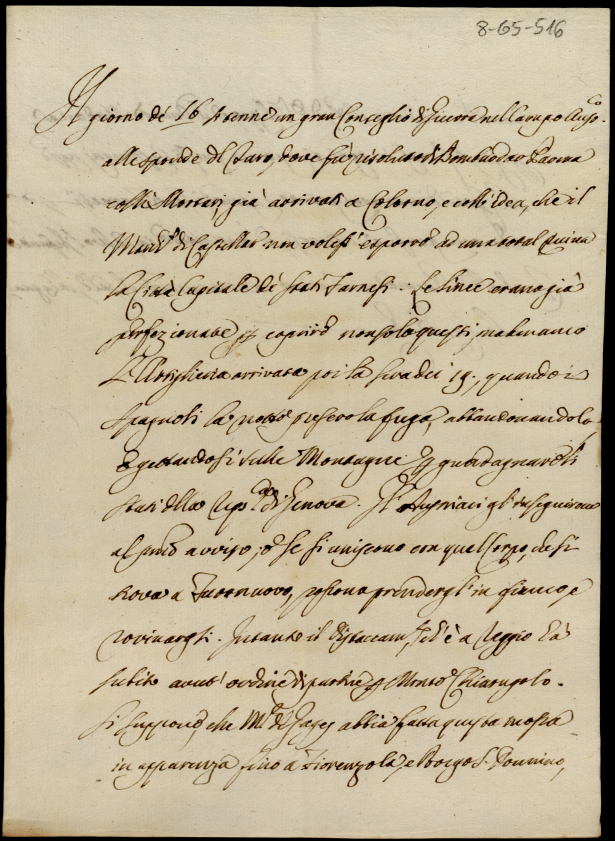 8-65-516
Il giorno dé 16 si tenne un gran Conseglio di Guerra nel Campo Aus.co
alle sponde del Taro, dove fù risoluto di Bombardar Parma
colli Mortari già arrivati a Colorno, e coll'idea, che il
March.e di Castellar non volesse esporre ad una total ruina
la Città Capitale dé Stati Farnesi. Le linee erano già
perfezionate p coprire non solo questi, ma benanco
L'Artiglieria arrivata poi la sera dei 19., quando i
Spagnoli la notte presero la fuga, abbandonandola,
e gettandosi sulle Montagne p guadagnare li
stati della Rep.ca di Genova. Gl'Austriaci gl'inseguirono
al primo avviso, e se si uniscono con quel Corpo, che si
trova a Fornuovo, potrano prendergl'in fianco, e
rovinargli. Intanto il distaccam.to ch'è a Reggio hà
subito avut'ordine di partire p Monte Chiarugolo.
Si suppone, che Mr. de Gages abbia fatta questa mossa
in apparenza fino à Fiorenzola, e Borgo S. Donnino,